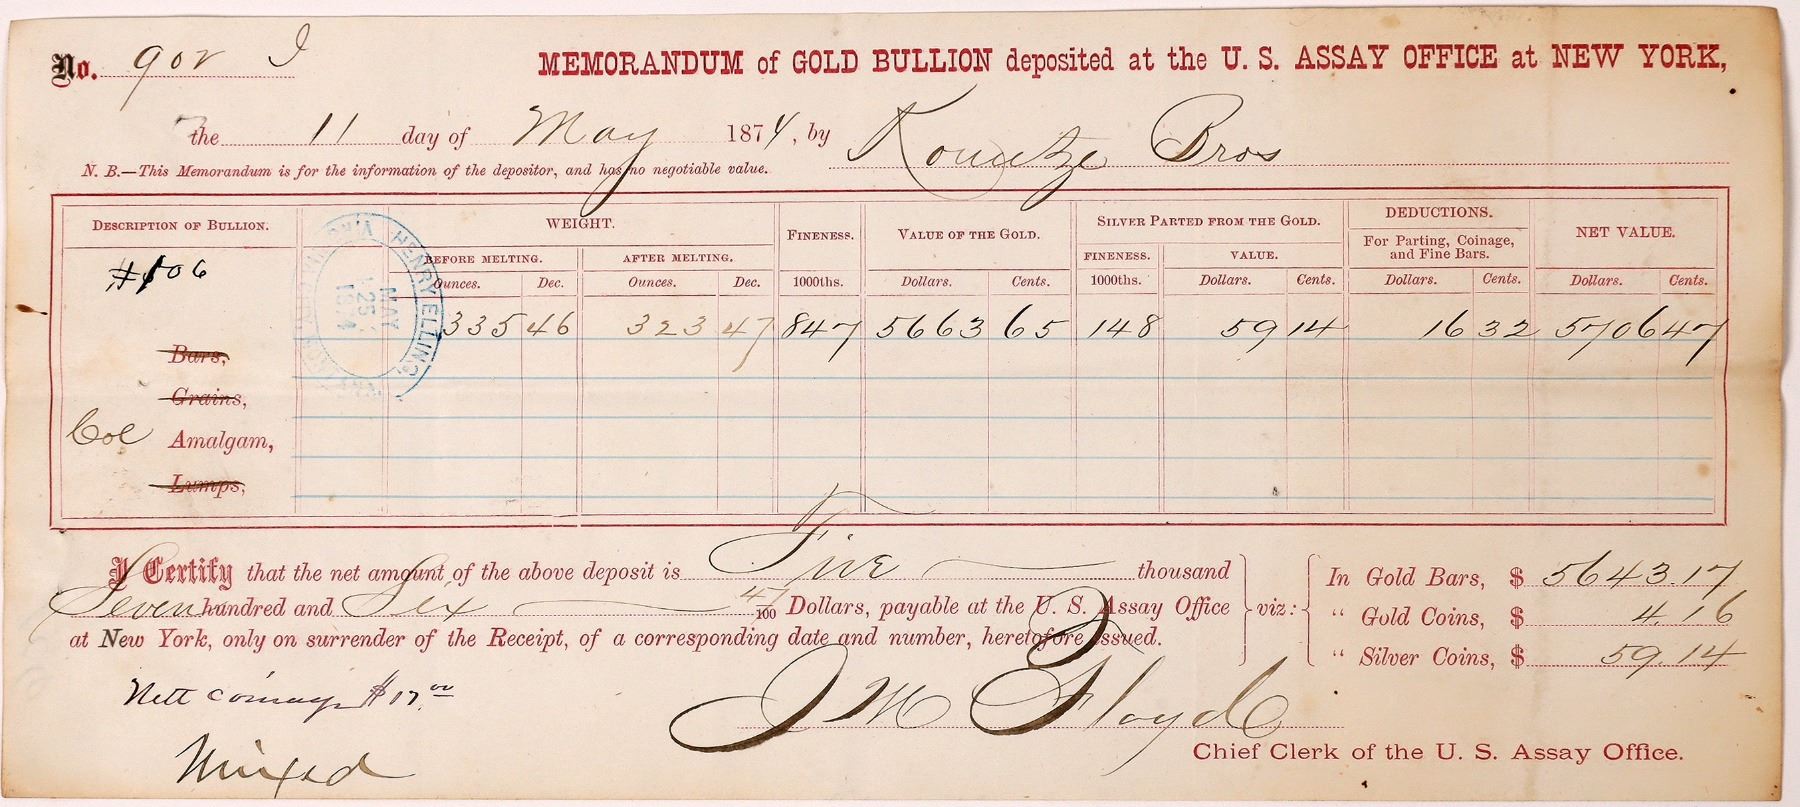 No. 902 I MEMORANDUM of GOLD BULLION deposited at the U. S. ASSAY OFFICE at NEW YORK,
the 11 day of May 1874, by Kountze Bros
N. B.—This Memorandum is for the information of the depositor, and has no negotiable value.
DESCRIPTION OF BULLION. WEIGHT. FINENESS. VALUE OF THE GOLD. SILVER PARTED FROM THE GOLD. DEDUCTIONS. NET VALUE.
BEFORE MELTING. AFTER MELTING. FINENESS. VALUE. For Parting, Coinage, and Fine Bars.
Ounces. Dec. Ounces. Dec. 1000ths. Dollars. Cents. 1000ths. Dollars. Cents. Dollars. Cents. Dollars. Cents.
#106
335 46 323 47 847 5663 65 148 59 14 16 32 5706 47
HENRY ELLING, VIRGINIA MONTANA
MAY 25 1874
Bars,
Grains,
Col Amalgam,
Lumps,
I Certify that the net amount of the above deposit is Five thousand
Seven hundred and Six 47/100 Dollars, payable at the U. S. Assay Office
at New York, only on surrender of the Receipt, of a corresponding date and number, heretofore issued.
viz:
In Gold Bars, $ 5643.17
“ Gold Coins, $ 4.16
“ Silver Coins, $ 59.14
Nett coinage $17.00
J M Floyd
Chief Clerk of the U. S. Assay Office.
Minted